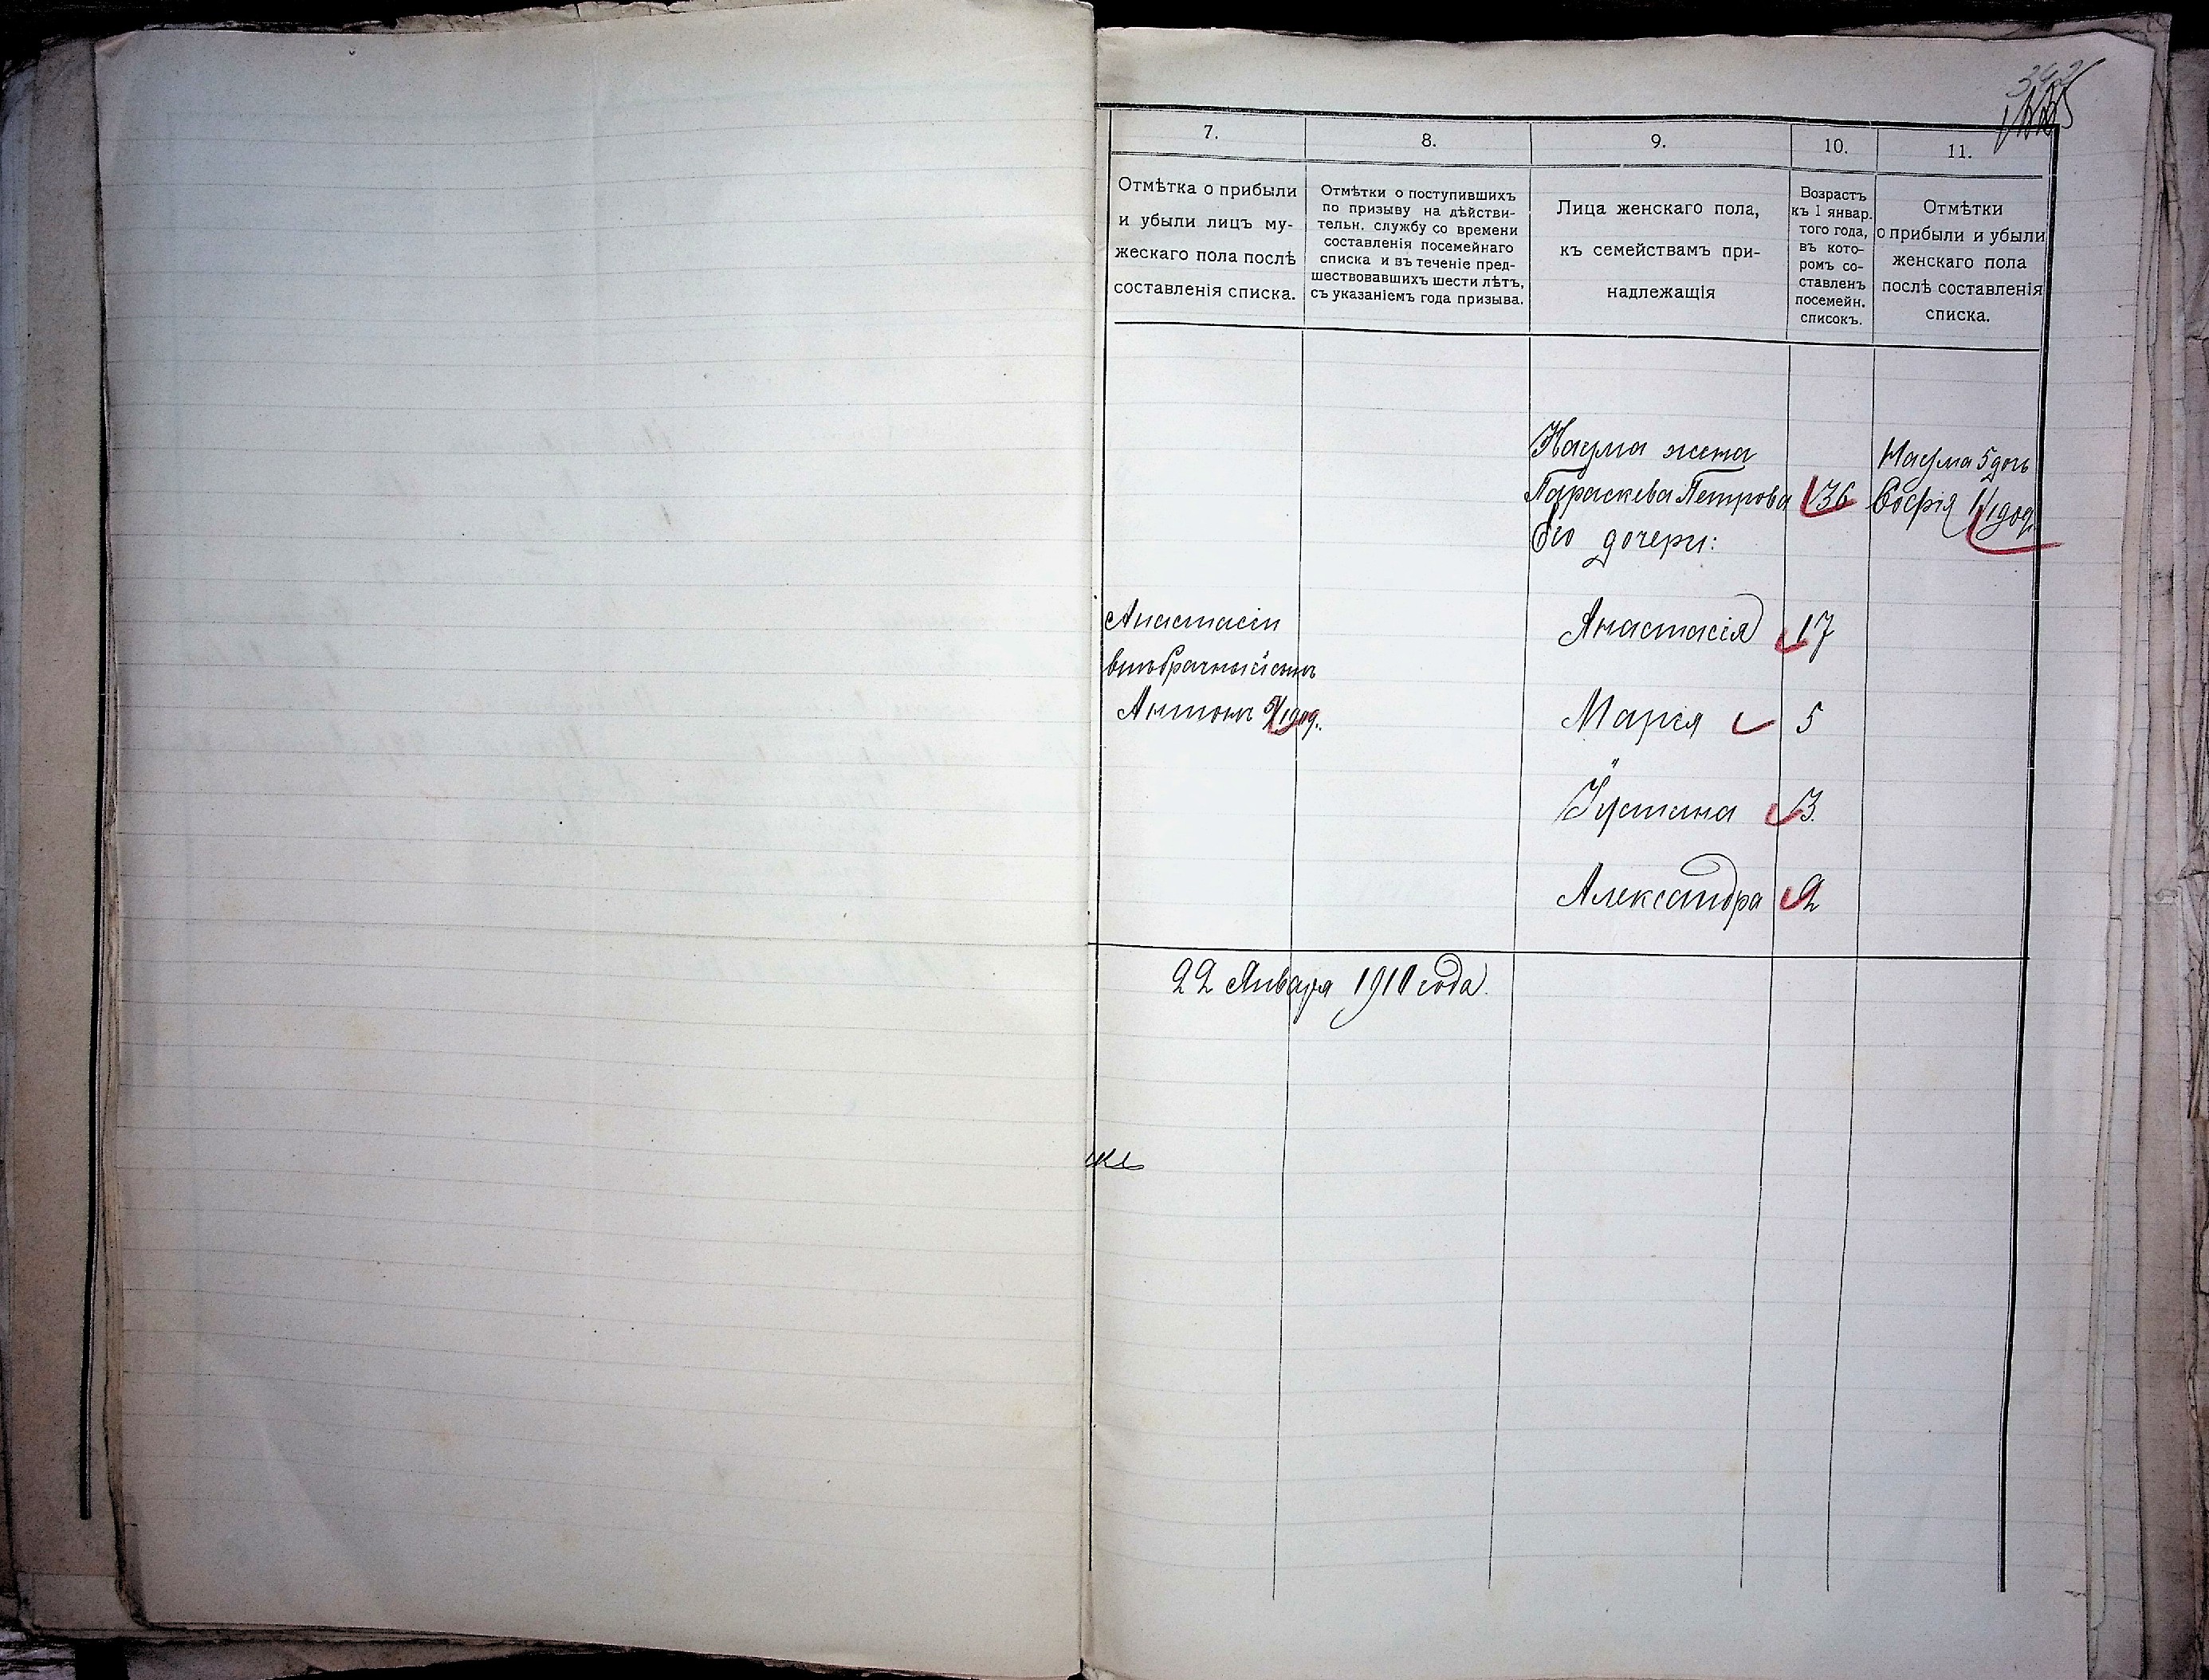 342
7.
8.
9.
10.
11.
Отмѣтка о прибыли
и убыли лицъ му-
жескаго пола послѣ
составленія списка.
Отмѣтки о поступившихъ
по призыву на дѣйстви-
тельн. службу со времени
составленія посемейнаго
списка и въ теченіе пред-
шествовавшихъ шести лѣтъ,
съ указаніемъ года призыва.
Лица женскаго пола,
къ семействамъ при-
надлежащія
Возрастъ
къ 1 январ.
того года,
въ кото-
ромъ со-
ставленъ
посемейн.
списокъ.
Отмѣтки
о прибыли и убыли
женскаго пола
послѣ составленія
списка.
Наума жена
Параскева Петрова 36
Его дочери:
Наума 5 дочь
Софія 1/1 год.
Анастасіи
внѣбрачный сынъ
Антонъ 5/1 год.
Анастасія 17
Марія 5
Іустина 3.
Александра 2
22 Января 1910 года.